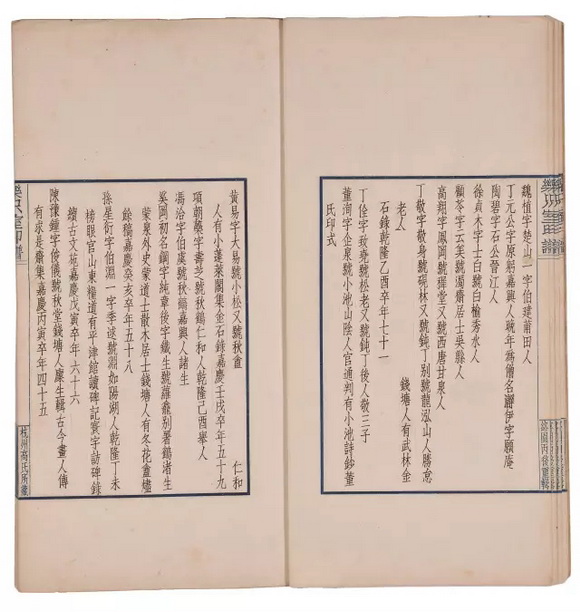 魏植字楚山一字伯建莆田人
丁元公字原躬嘉興人晚年為僧名淨伊字願庵
陶碧字石公晉江人
徐貞木字士白號白榆秀水人
顧苓字云美號濁齋居士吳縣人
高翔字鳳岡號樨堂又號西唐甘泉人
丁敬字敬身號硯林又號鈍丁別號龍泓山人勝怠
老人 錢塘人有武林金
石錄乾隆乙酉卒年七十一
丁佺字致堯號松老又號鈍丁後人敬三子
董洵字企泉號小池山陰人官通判有小池詩鈔董
氏印式
黃易字大易號小松又號秋盦 仁和
人有小蓬萊閣集金石錄嘉慶壬戌卒年五十九
項朝蘽字壽芝號秋鶴仁和人乾隆己酉舉人
馮洽字伯虞號秋鶴嘉興人諸生
奚岡初名鋼字純章後字鐵生號蘿龕別署鶴渚生
蒙泉外史蒙道士散木居士錢塘人有冬花盦燼
餘稿嘉慶癸亥卒年五十八
孫星衍字伯淵一字季逑號淵如陽湖人乾隆丁未
榜眼官山東糧道有平津館讀碑記寰宇訪碑錄
續古文苑嘉慶戊寅卒年六十六
陳豫鍾字俊儀號秋堂錢塘人廩生輯古今畫人傳
有求是齋集嘉慶丙寅卒年四十五
杭州高氏所藏